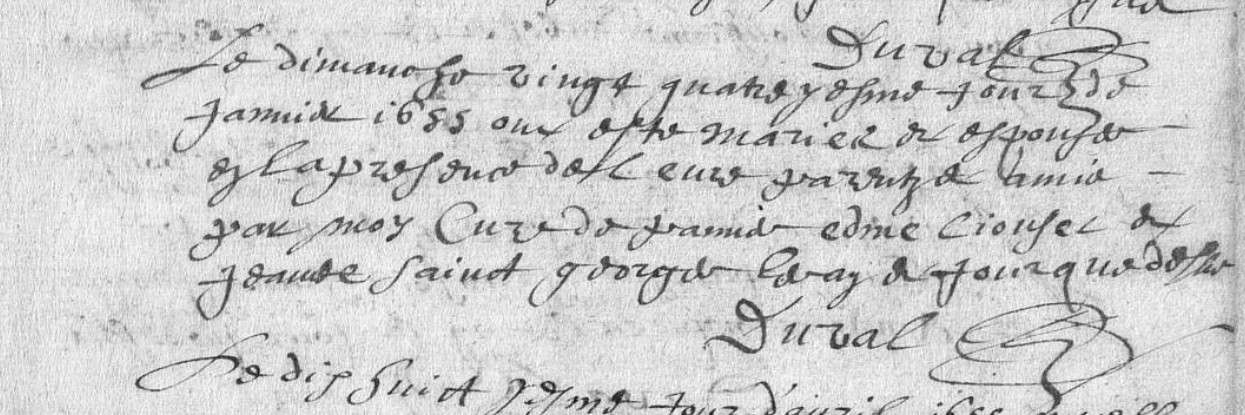 Duval
Le dimanche vingt quatreyesme Jour de
Janvier 1655 ont este mariez et espousez
en la presence de leurs parentz et amis
par moy Curé de edme Cionsel et
Jeanne Sainct george les an et Jour que dessus
Duval
Le dix huict yesme Jour d'avril 1655